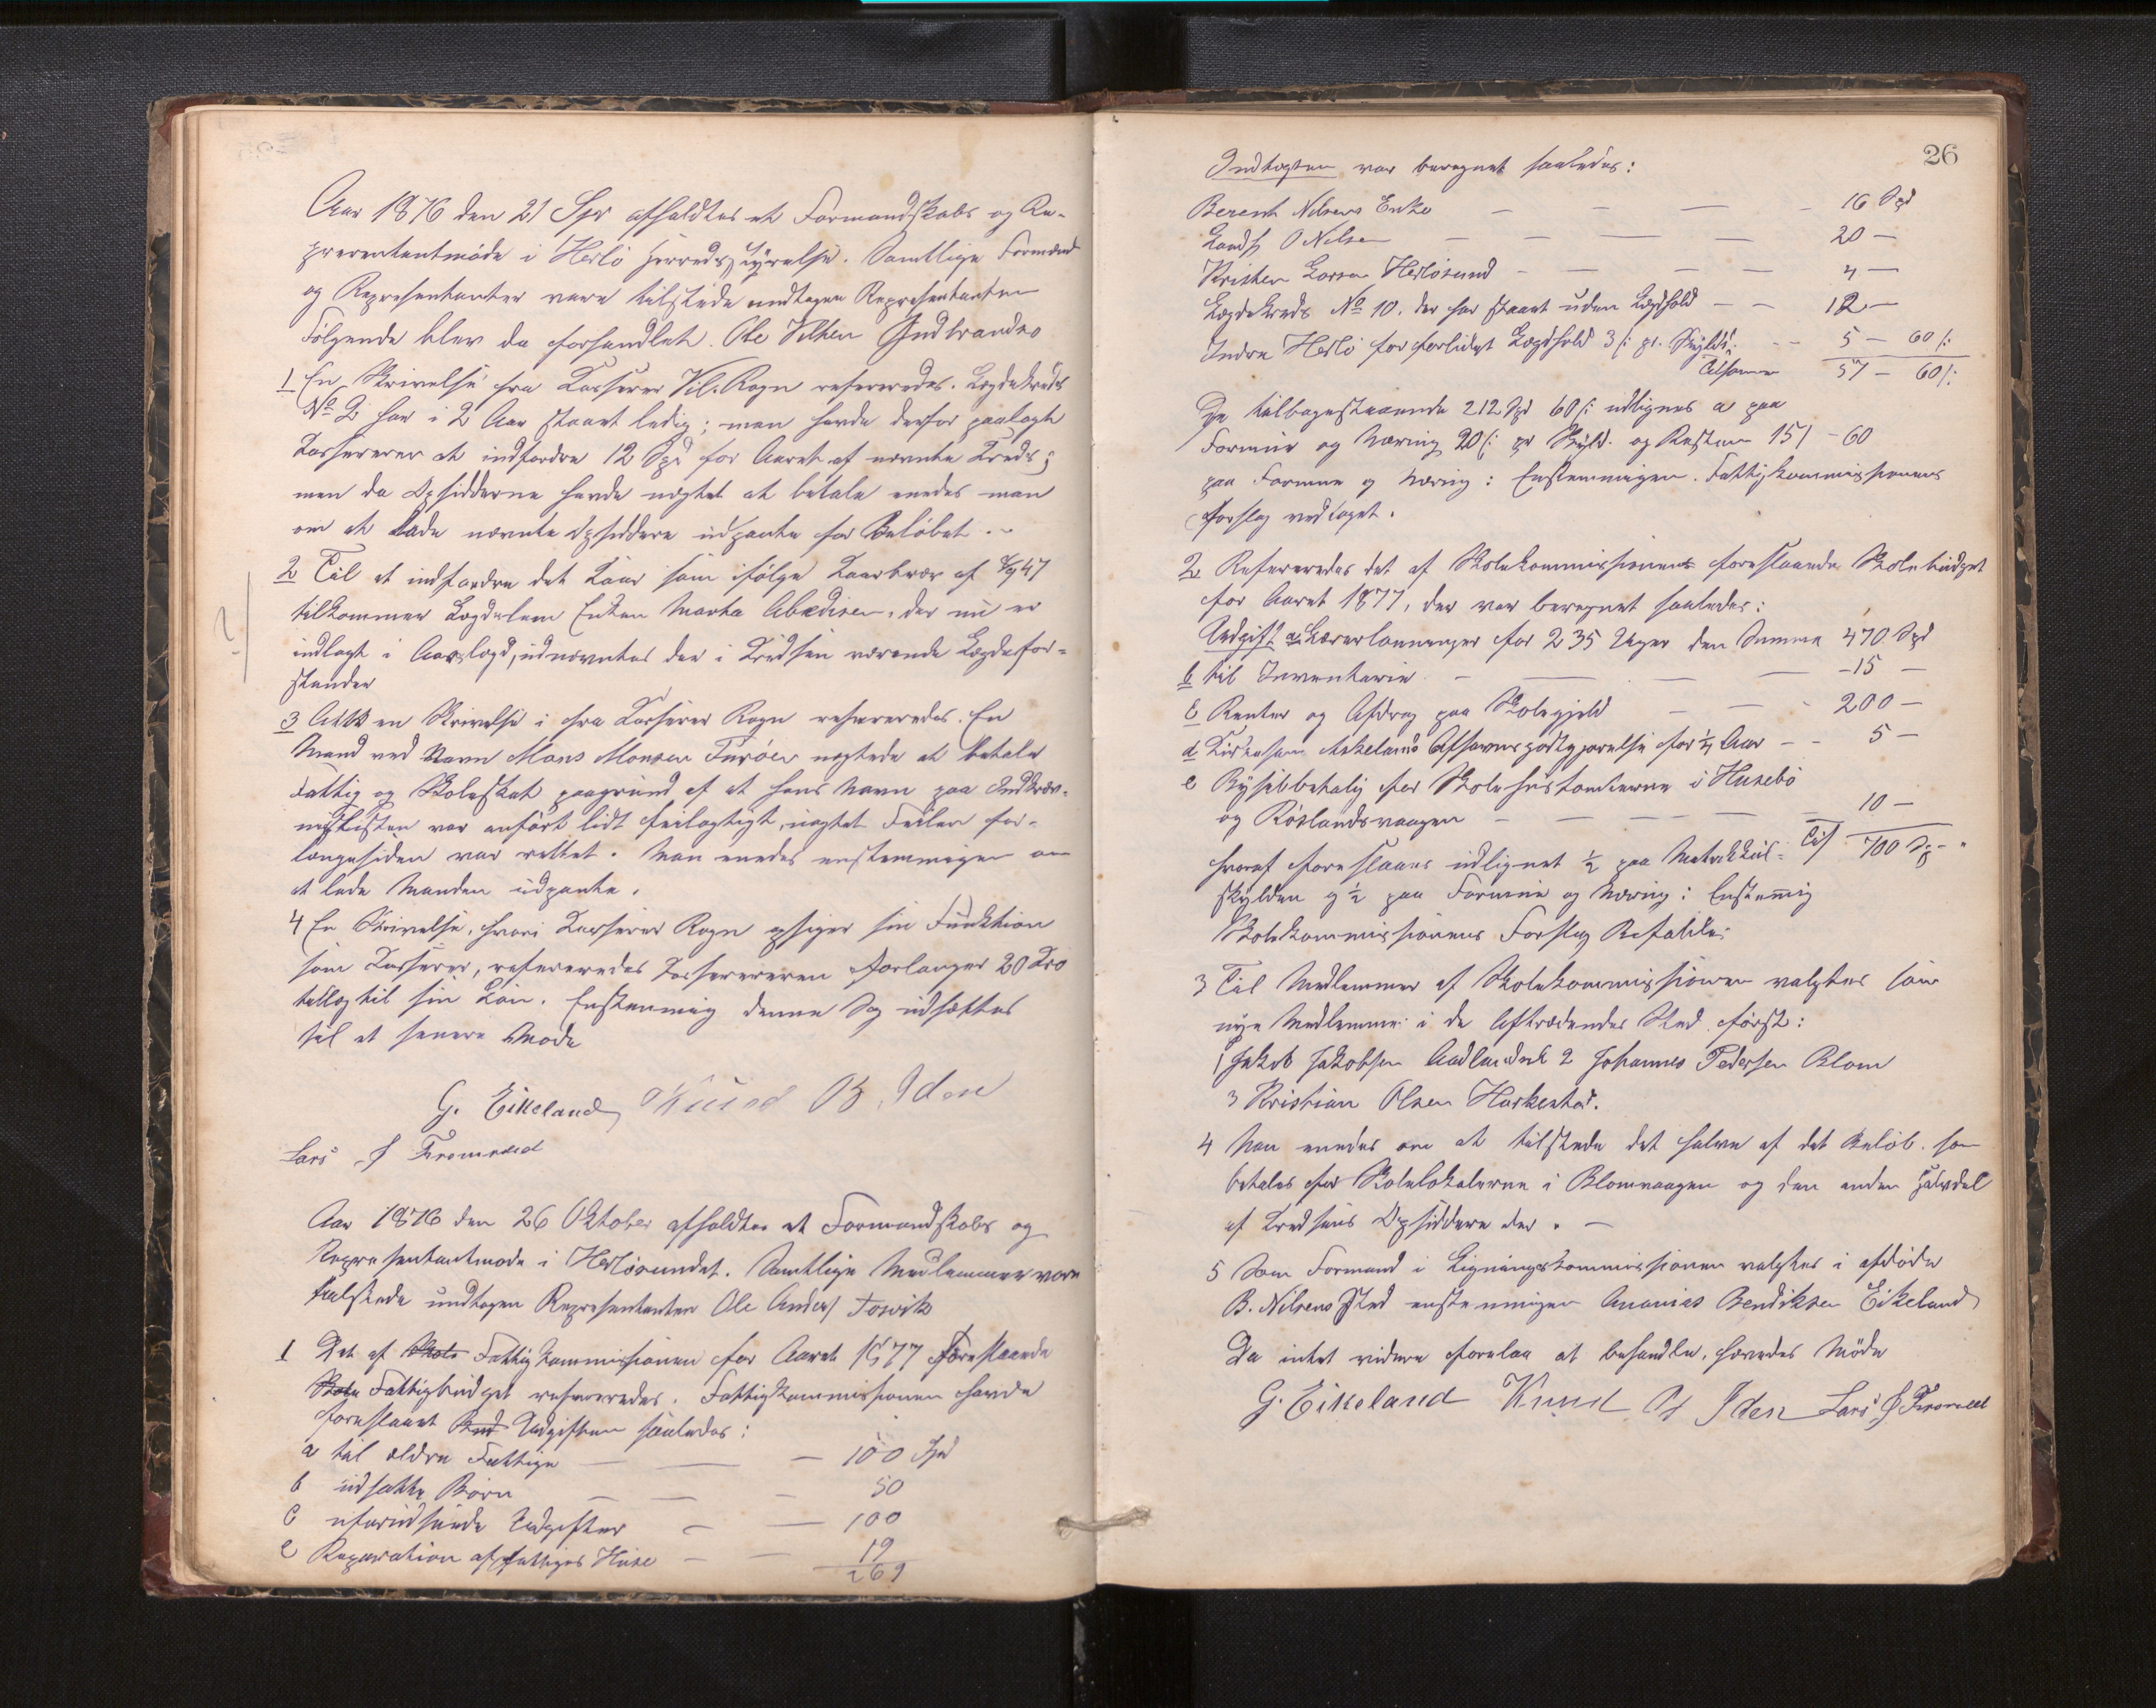 Aar 1876 den 21 Spr afholdtes et Formandskabs og Re-
presentantmøde i Herlø Herredsstyrelse. Samtlige Formænd
og Representanter vare tilstede undtagen Representanten
Følgende blev da forhandlet. Ole Gudbrandso
1 En Skrivelse fra Kasserer Vil. Rogn refereredes. Lægdekreds
No 2 har i 2 Aar staaet ledig; man havde derfor paalagt
Kassereren at indfordre 12 Spd for Aaret af nævnte Kreds;
men da Opsidderne havde nægtet at betale enedes man
om at lade nævnte Opsiddere udpante for Beløbet. -
2 Til at indfordre det Kaar som ifølge Kaarbrev af 47
tilkommer Lægdslem Enken Marta Abedisen, der nu er
indlagt i Lægd, udnævntes den i Kredsen værende Lægdsfor-
stander
3 Atter en Skrivelse i fra Kasserer Rogn refereredes. En
Mand ved Navn Mons Monsen Turøen nægtede at betale
Fattig og Skoleskat paagrund af at hans Navn paa Indkræv-
ningslisten var anført lidt feilagtigt, uagtet Feilen for-
længesiden var rettet. Man enedes enstemmigen om
at lade Manden udpante.
4 En Skrivelse, hvori Kasserer Rogn opsiger sin Funktion
som Kasserer, refereredes Kassereren forlanger 20 Kro
tillæg til sin Løn. Enstemmig denne Sag udsættes
til et senere Møde
G. Eikeland Knud O Iden
Lars J Fromreid
Aar 1876 den 26 Oktober afholdtes et Formandskabs og
Representantmøde i Herløsundet. Samtlige Medlemmer vare
tilstede undtagen Representanten Ole Anders Toswik
1 Det af Skole Fattigkommissionen for Aaret 1877 Foreslaaede
Skole Fattigbudget refereredes. Fattigkommissionen havde
foreslaaet Bud Udgiften saaledes:
a til ældre Fattige — — — 100 Spd
b udsatte Børn — — — 50
c uforudseede Udgifter — — 100
e Reparation af Fattiges Huse — — 19
269
26
Indtægten var beregnet saaledes:
Berent Nilsens Enke — — — — 16 Spd
Landh O Nilsen — — — — 20 —
Kristen Larsen Herløsund — — — — 4 —
Lægdekreds No 10. der har staaet uden Lægdhold — — 12 —
Indre Herlø for forlidet Lægdhold 3 ß pr. Skyldd. — — 5 — 60 ß
Tilsammen 57 — 60 ß
De tilbagestaaende 212 Spd 60 ß udlignes a paa
Formue og Næring 20 ß pr Skyld. og Resten 151 — 60
paa Formue og Næring: Enstemmigen. Fattigkommissionens
Forslag vedtaget.
2 Refereredes det af Skolekommissionen foreslaaede Skolebudget
for Aaret 1877, der var beregnet saaledes:
Udgift a Lærerlønninger for 235 Uger den Summa 470 Spd
b til Inventarie — — — — 15 —
c Renter og Afdrag paa Skolegjeld — — — 200 —
d Askelands Afsavnsgodtgjørelse for ½ Aar — — 5 —
e Bygselbetalig for Skolehustomterne i Husebø
og Røslandsvaagen — — — — — 10 —
hvoraf foreslaaes udlignet ½ paa Matrikkul- Tils 700 Sp —
skylden og ½ paa Formue og Næring: Enstemig
Skolekommissionens Forslag Befaldes
3 Til Medlemmer af Skolekommissionen valgtes som
nye Medlemmer i de Aftrædendes Sted først:
1 Jakob Jakobsen Aadland 2 Johannes Pedersen Blom
3 Kristian Olsen Harkestad.
4 Man enedes om at tilstede det halve af det Beløb. som
betales for Skolelokalerne i Blomvaagen og den anden Halvdel
af Kredsens Opsiddere der. —
5 Som Formand i Ligningskommissionen valgtes i afdøde
B. Nilsens Sted enstemmigen Ananias Bendiksen Eikeland
Da intet videre forelaa at behandle, hævedes Møde
G. Eikeland Knud O Iden Lars J Fromreid